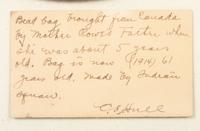 Bead bag brought from Canada
by Mother Rowe's Father when
she was about 5 years
old. Bag is now (1914) 61
years old. Made by Indian
squaw.
C. E. Hull